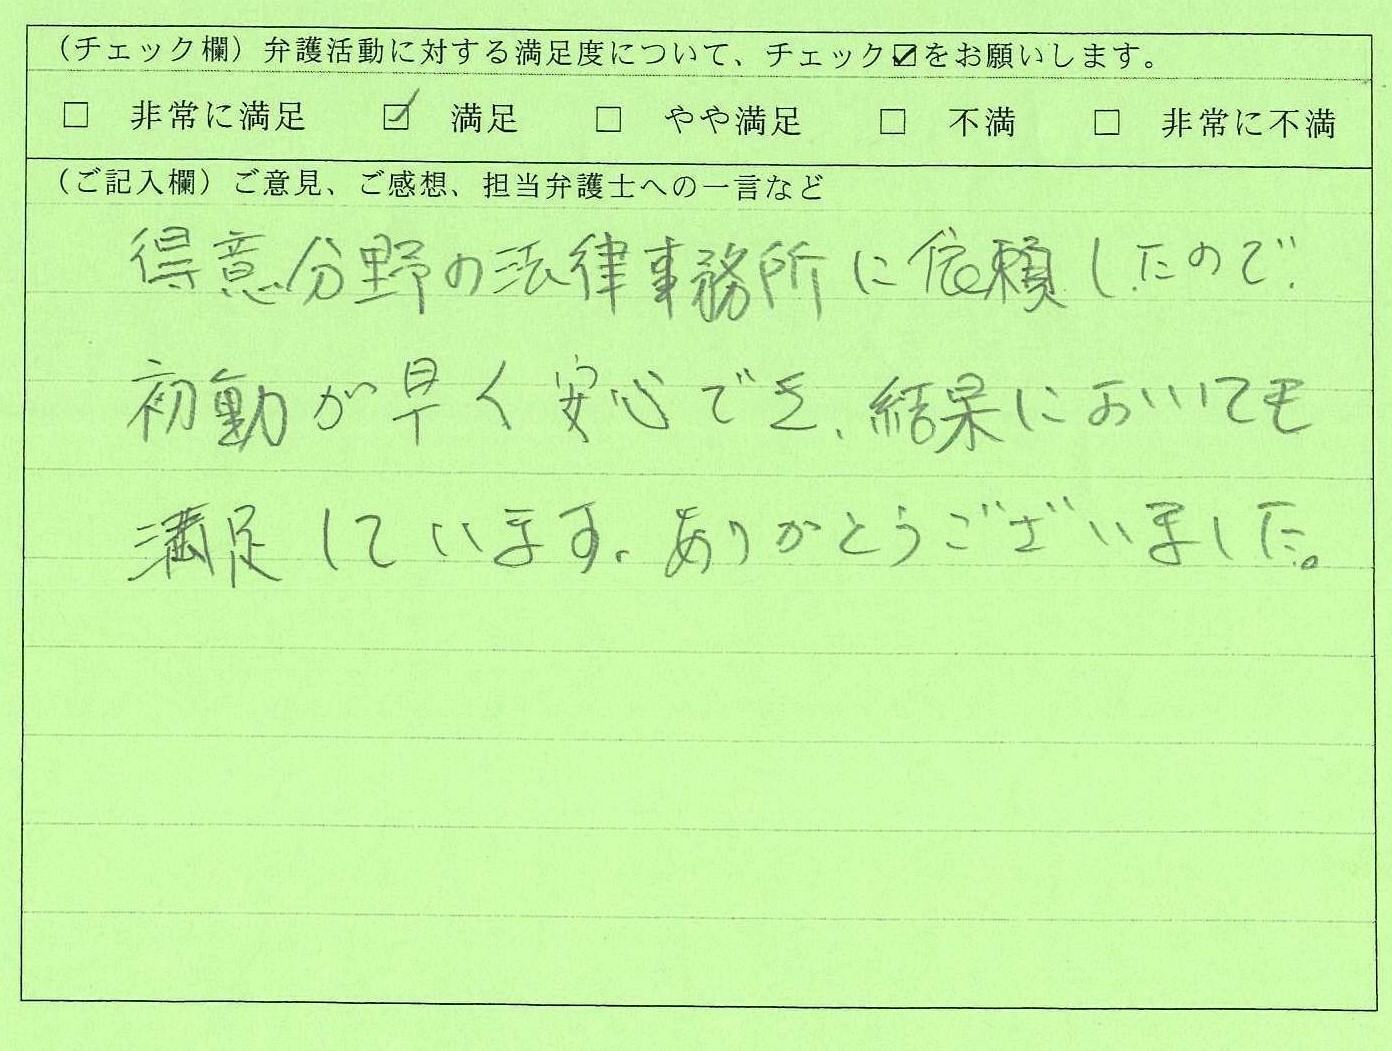 （チェック欄）弁護活動に対する満足度について、チェック☑をお願いします。
□ 非常に満足 ☑ 満足 □ やや満足 □ 不満 □ 非常に不満
（ご記入欄）ご意見、ご感想、担当弁護士への一言など
得意分野の法律事務所に依頼したので、
初動が早く安心でき、結果においても
満足しています。ありがとうございました。